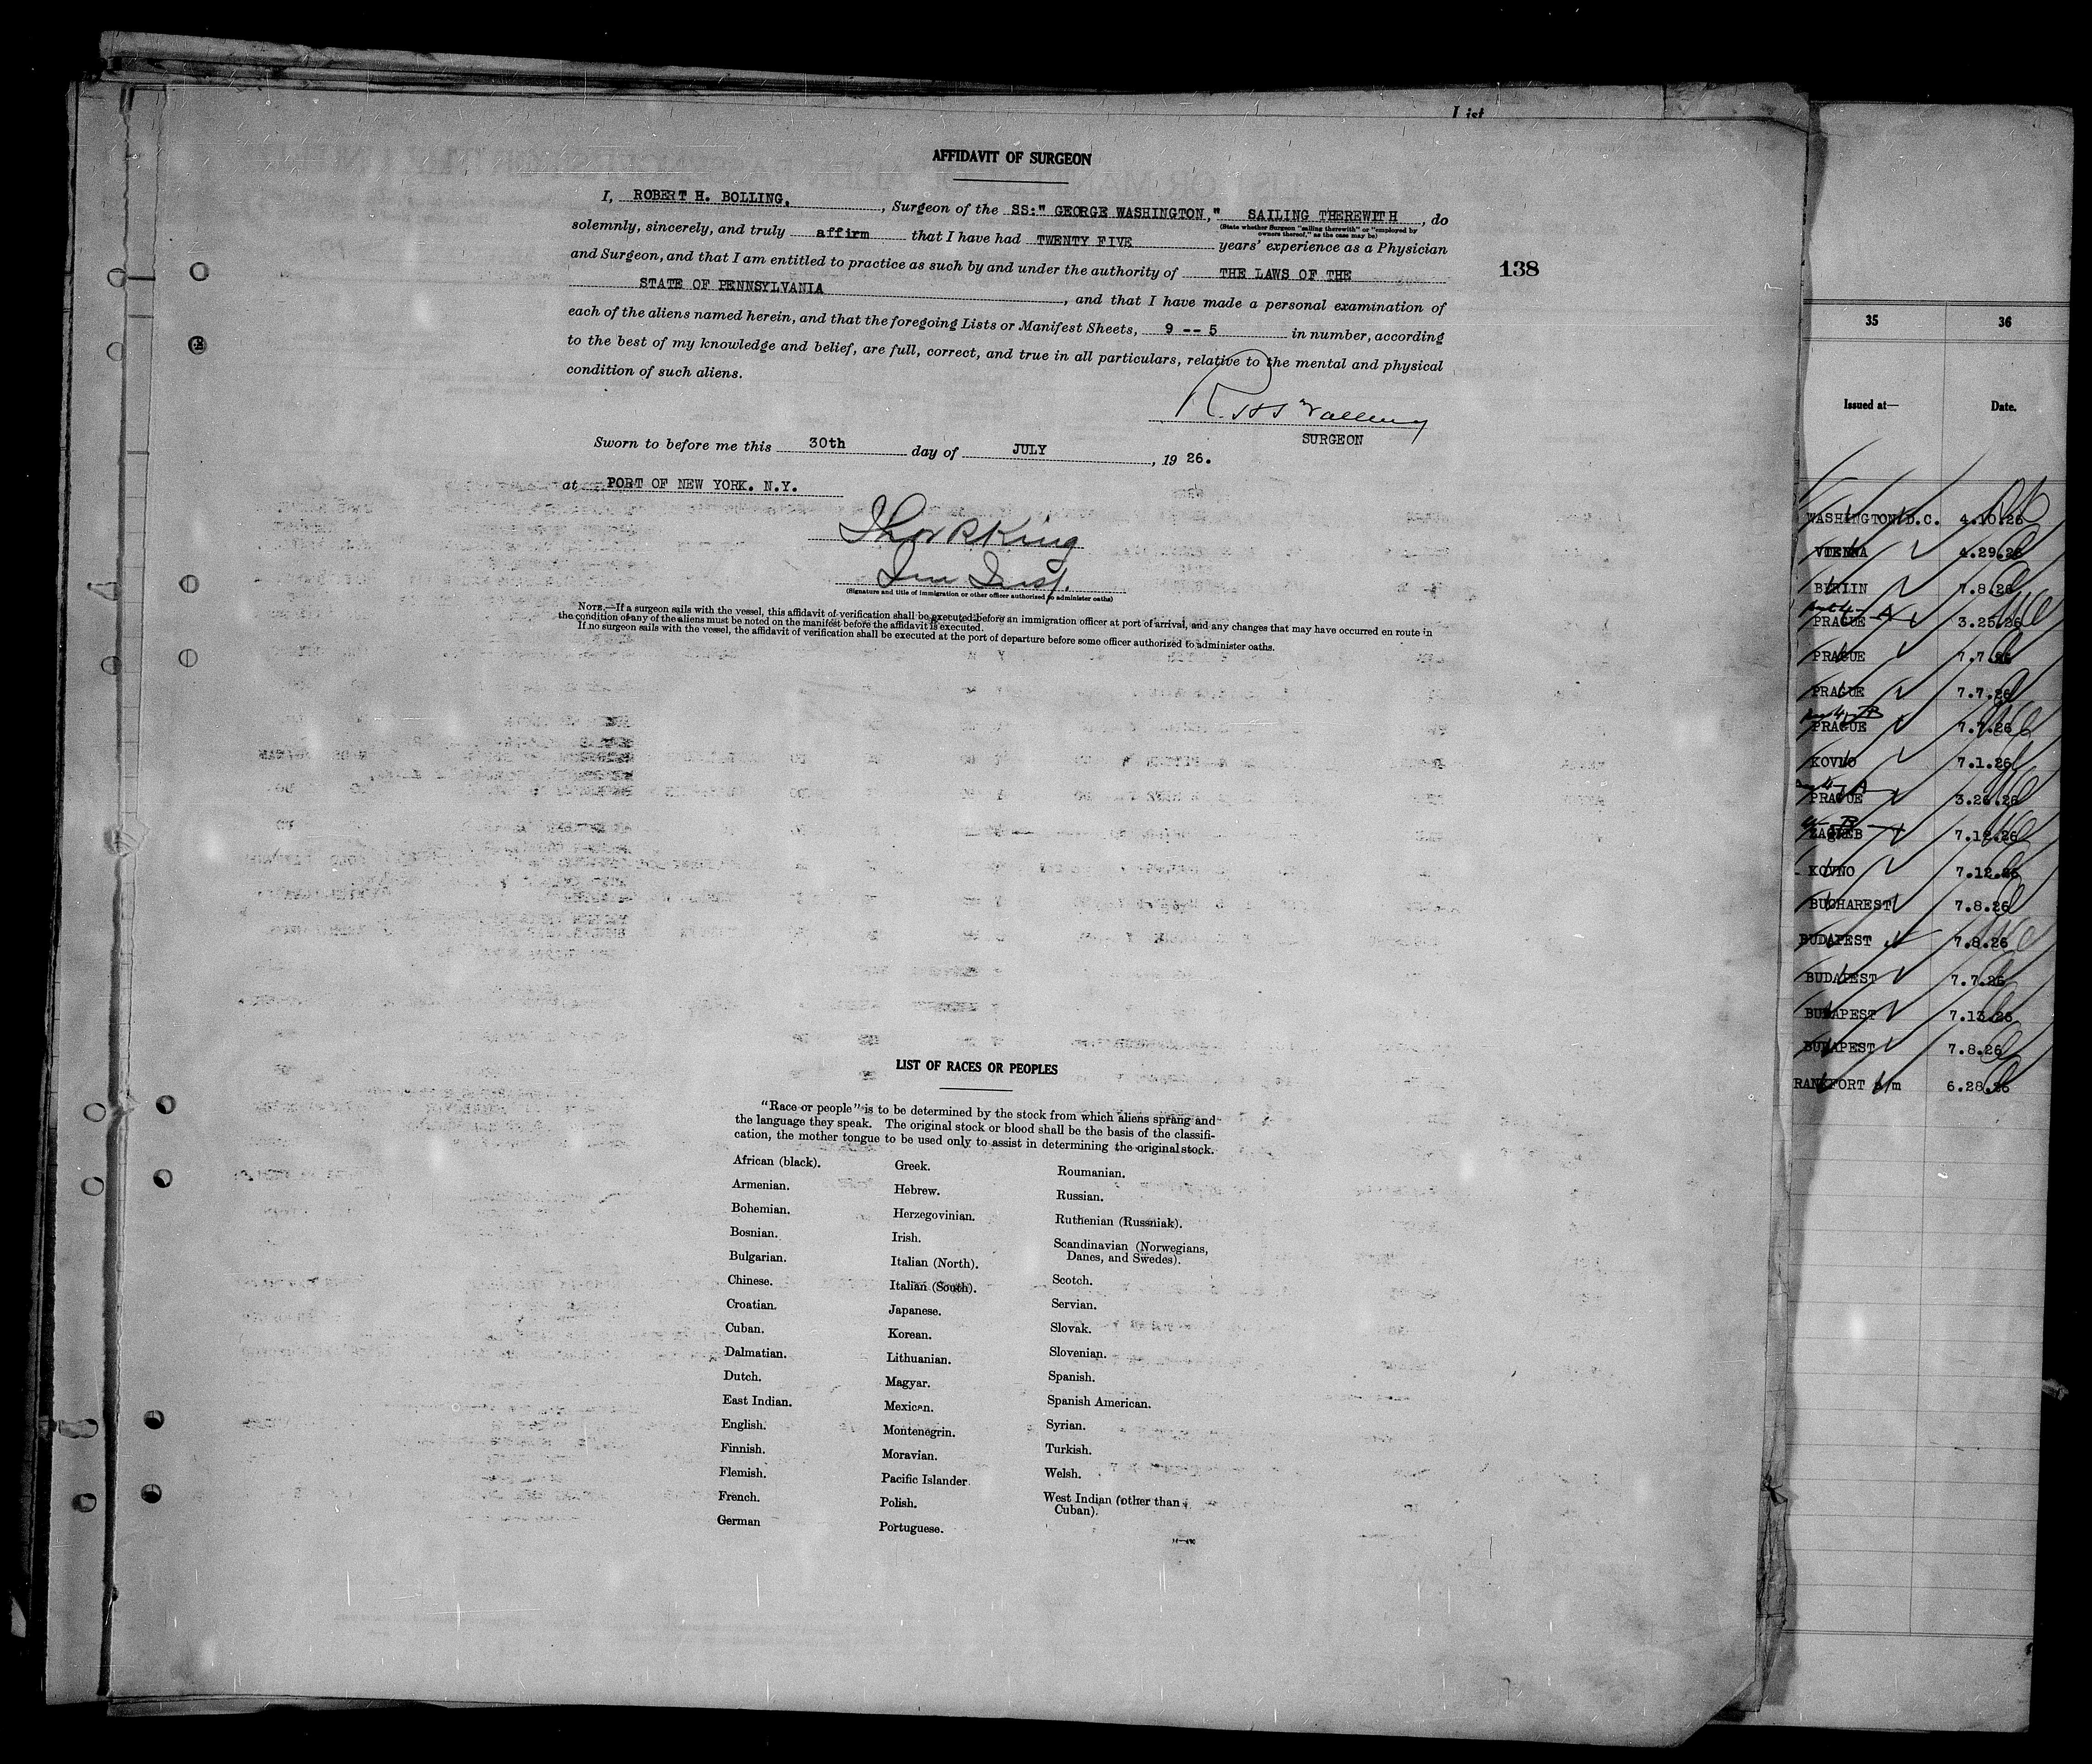 List
AFFIDAVIT OF SURGEON
I, ROBERT H. BOLLING, , Surgeon of the SS:" GEORGE WASHINGTON," SAILING THEREWITH , do
(State whether Surgeon "sailing therewith" or "employed by
owners thereof," as the case may be)
solemnly, sincerely, and truly affirm that I have had TWENTY FIVE years' experience as a Physician
and Surgeon, and that I am entitled to practice as such by and under the authority of THE LAWS OF THE
138
STATE OF PENNSYLVANIA , and that I have made a personal examination of
each of the aliens named herein, and that the foregoing Lists or Manifest Sheets, 9 -- 5 in number, according
to the best of my knowledge and belief, are full, correct, and true in all particulars, relative to the mental and physical
condition of such aliens.
SURGEON
Sworn to before me this 30th day of JULY , 19 26.
at PORT OF NEW YORK. N.Y.
King
Imm Insp.
(Signature and title of immigration or other officer authorized to administer oaths)
NOTE.—If a surgeon sails with the vessel, this affidavit of verification shall be executed before an immigration officer at port of arrival, and any changes that may have occurred en route in
the condition of any of the aliens must be noted on the manifest before the affidavit is executed.
If no surgeon sails with the vessel, the affidavit of verification shall be executed at the port of departure before some officer authorized to administer oaths.
LIST OF RACES OR PEOPLES
"Race or people" is to be determined by the stock from which aliens sprang and
the language they speak. The original stock or blood shall be the basis of the classifi-
cation, the mother tongue to be used only to assist in determining the original stock.
African (black).
Armenian.
Bohemian.
Bosnian.
Bulgarian.
Chinese.
Croatian.
Cuban.
Dalmatian.
Dutch.
East Indian.
English.
Finnish.
Flemish.
French.
German
Greek.
Hebrew.
Herzegovinian.
Irish.
Italian (North).
Italian (South).
Japanese.
Korean.
Lithuanian.
Magyar.
Mexican.
Montenegrin.
Moravian.
Pacific Islander
Polish.
Portuguese.
Roumanian.
Russian.
Ruthenian (Russniak).
Scandinavian (Norwegians,
Danes, and Swedes).
Scotch.
Servian.
Slovak.
Slovenian.
Spanish.
Spanish American.
Syrian.
Turkish.
Welsh.
West Indian (other than
Cuban).
35 36
Issued at— Date.
WASHINGTON D.C. 4.10.26
VIENNA 4.29.26
BERLIN 7.8.26
PRAGUE 3.25.26
PRAGUE 7.7.26
PRAGUE 7.7.26
PRAGUE 7.7.26
KOVNO 7.1.26
PRAGUE 3.26.26
ZAGREB 7.12.26
KOVNO 7.12.26
BUCHAREST 7.8.26
BUDAPEST 7.8.26
BUDAPEST 7.7.26
BUDAPEST 7.13.26
BUDAPEST 7.8.26
RANKFORT a/m 6.28.26